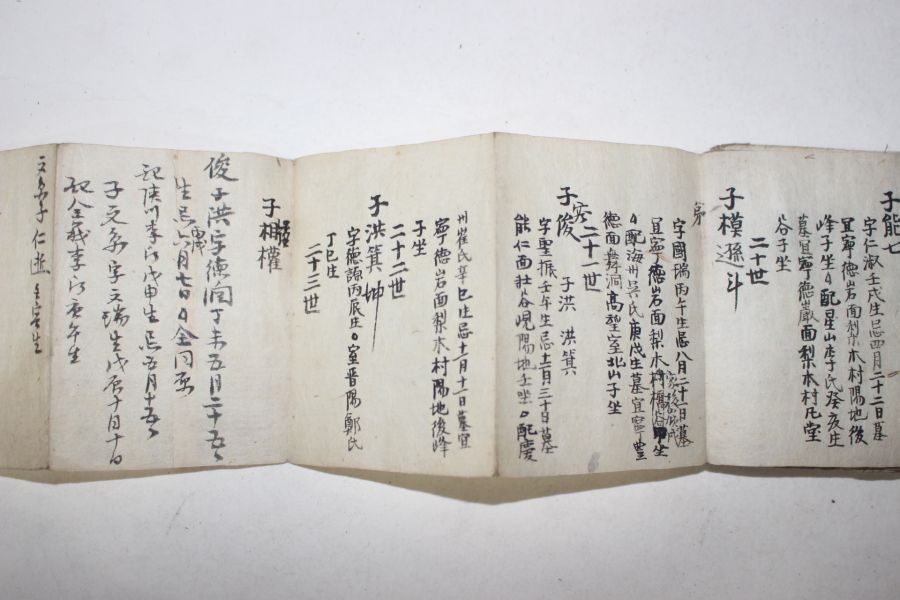 子能七
字仁淑壬戌生忌四月二十二日墓
宜寧德岩面梨木村陽地後
峰子坐配星山李氏癸亥生
墓宜寧德巖面梨木村凡堂
谷子坐
二十世
子模孫斗
字國瑞丙午生忌八月二十一日墓
宜寧德岩面梨木村橋谷坐
配海州吳氏庚戌生墓宜寧豊
德面舞洞高型室北山子坐
二十一世
子俊 子洪 洪箕
字聖振壬午生忌十二月三十日墓
能仁面社谷峴陽地壬坐配慶
州崔氏辛巳生忌十二月十一日墓宜
寧德岩面梨木村陽地後峰
子坐
二十二世
子洪箕坤
字德謙丙辰生室晋陽鄭氏
丁巳生
二十三世
子相權
俊子洪字德潤丁未五月二十五
生忌六月七日
配陜川李氏戊申生忌五月十五
子文彔字文瑞生戊辰十月十日
配全義李氏庚午生
子仁